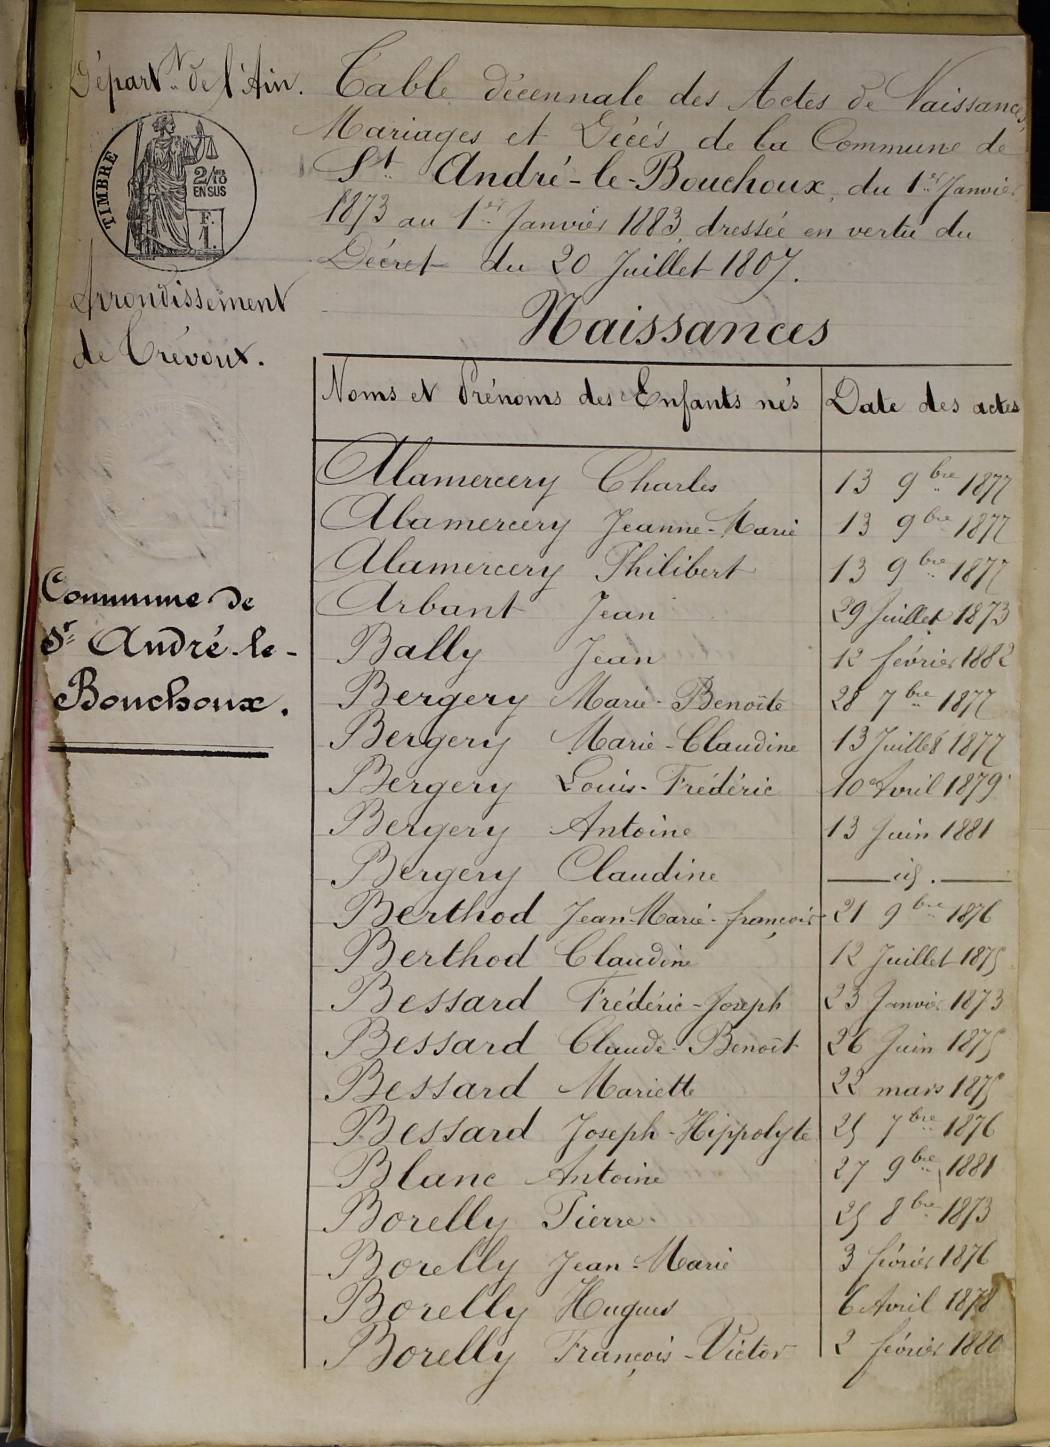 Départ.t de l'Ain.
TIMBRE
2/10
EN SUS
F.
1.
Arrondissement
de Trévoux.
Commune de
St André-le-
Bouchoux.
Table décennale des Actes de Naissances,
Mariages et Décès de la Commune de
St. André-le-Bouchoux, du 1er Janvier
1873 au 1er Janvier 1883, dressée en vertu du
Décret du 20 Juillet 1807.
Naissances
Noms et Prénoms des Enfants nés | Date des actes
Alamercery Charles 13 9bre 1877
Alamercery Jeanne-Marie 13 9bre 1877
Alamercery Philibert 13 9bre 1877
Arbant Jean 29 Juillet 1873
Bally Jean 12 février 1882
Bergery Marie-Benoîte 28 7bre 1877
Bergery Marie-Claudine 13 Juillet 1877
Bergery Louis-Frédéric 10 Avril 1879
Bergery Antoine 13 Juin 1881
Bergery Claudine — id. —
Berthod Jean-Marie-françois 21 9bre 1876
Berthod Claudine 12 Juillet 1875
Bessard Frédéric-Joseph 23 Janvier 1873
Bessard Claude-Benoît 26 Juin 1875
Bessard Mariette 22 mars 1875
Bessard Joseph-Hippolyte 25 7bre 1876
Blanc Antoine 27 9bre 1881
Borelly Pierre 25 8bre 1873
Borelly Jean-Marie 3 février 1876
Borelly Hugues 6 Avril 1878
Borelly François-Victor 2 février 1880